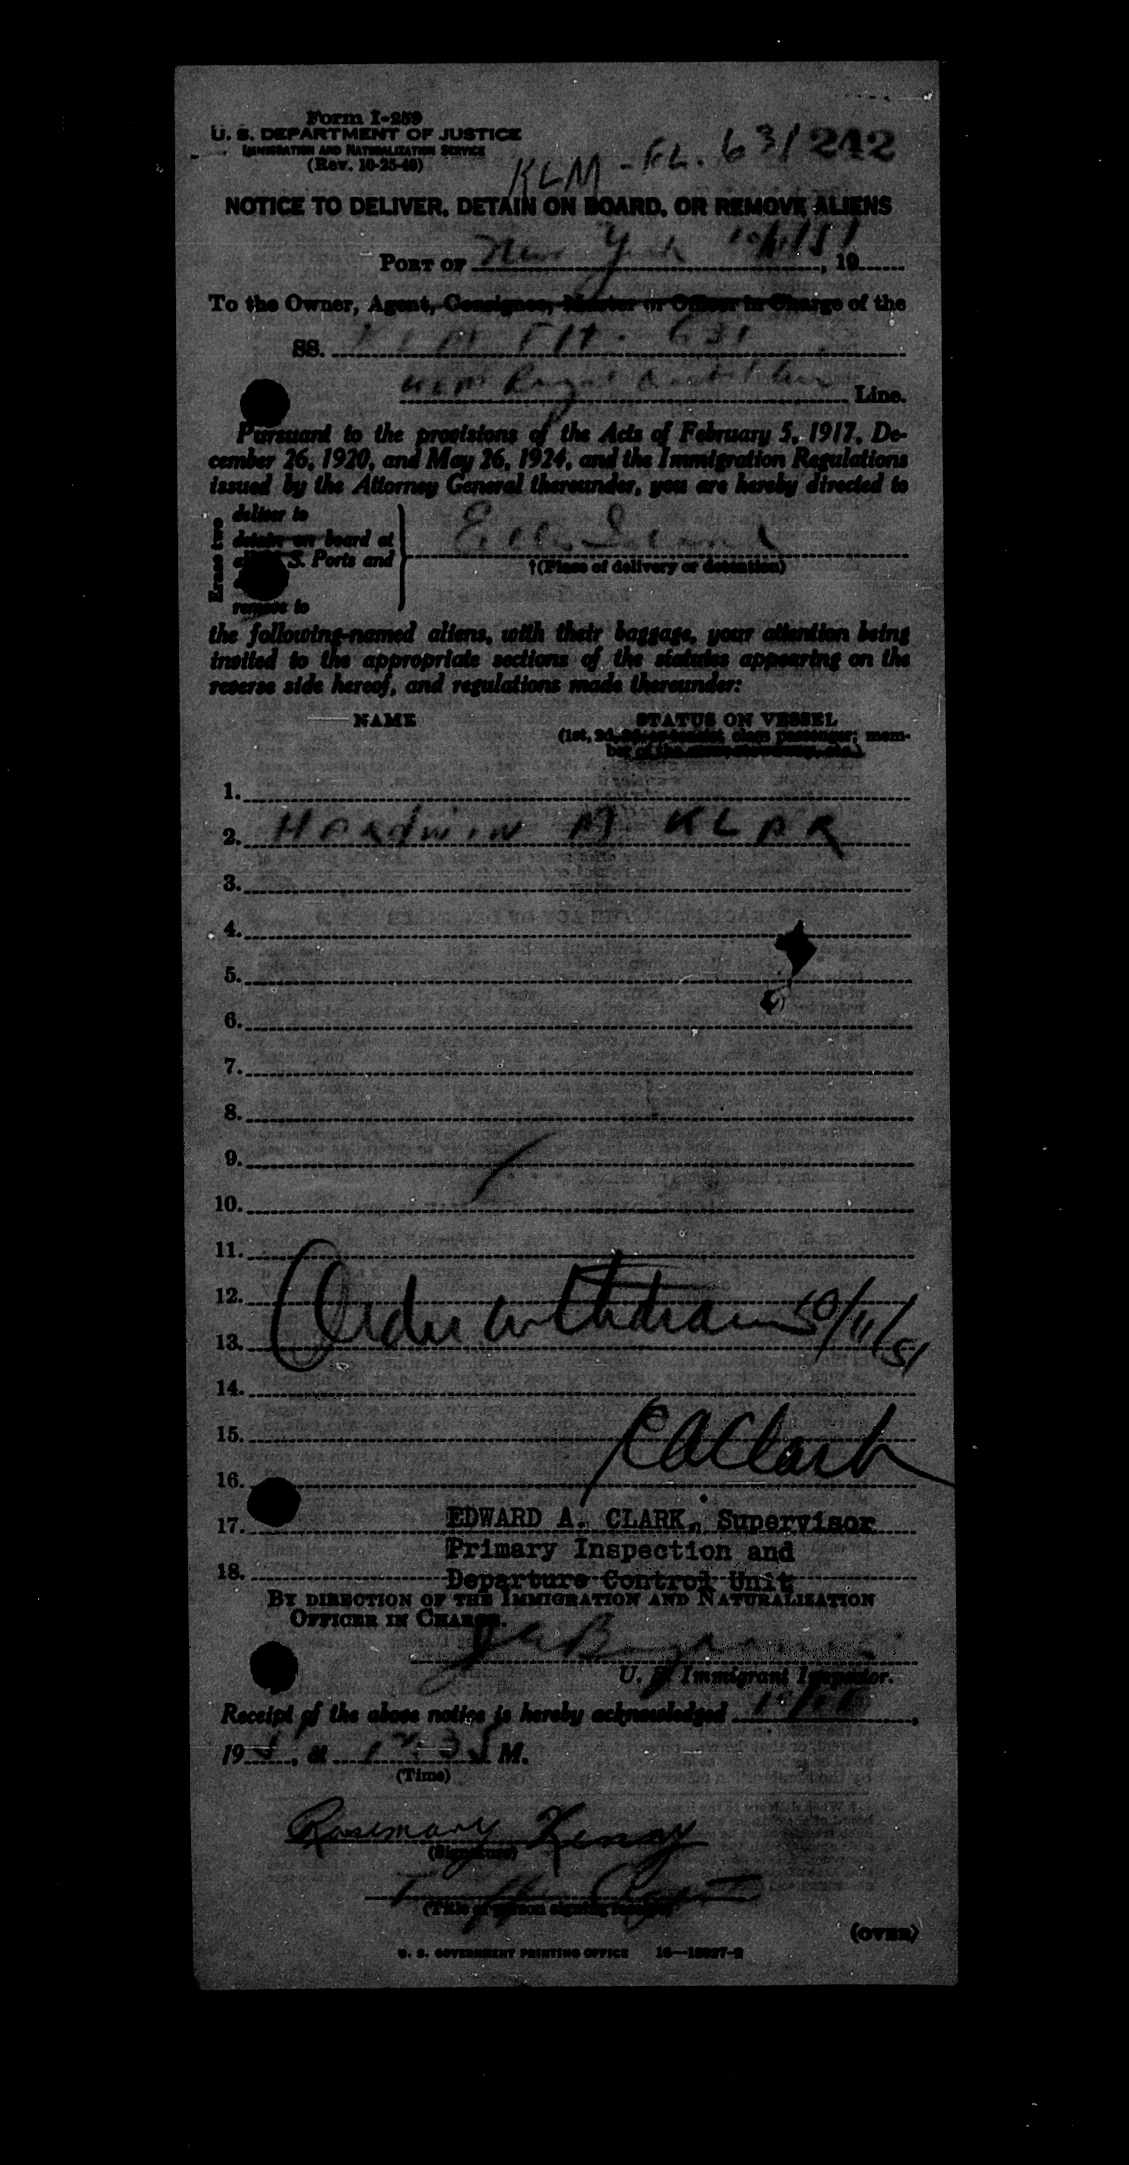 Form I-259
U. S. DEPARTMENT OF JUSTICE
IMMIGRATION AND NATURALIZATION SERVICE
(Rev. 10-25-40)
KLM - FL. 631 242
NOTICE TO DELIVER, DETAIN ON BOARD, OR REMOVE ALIENS
PORT OF New York 10/11/51, 19
To the Owner, Agent, Consignee, Master or Officer in Charge of the
SS. KLM Flt. 631
KLM Royal Dutch Air Line.
Pursuant to the provisions of the Acts of February 5, 1917, De-
cember 26, 1920, and May 26, 1924, and the Immigration Regulations
issued by the Attorney General thereunder, you are hereby directed to
Erase two
deliver to
detain on board at
all U. S. Ports and
remove to
Ellis Island
†(Place of delivery or detention)
the following-named aliens, with their baggage, your attention being
invited to the appropriate sections of the statutes appearing on the
reverse side hereof, and regulations made thereunder:
NAME STATUS ON VESSEL
(1st, 2d, class passenger; mem-
ber of the
1.
2. HARdwiN M KLAR
3.
4.
5.
6.
7.
8.
9.
10.
11.
12. Order withdrawn 10/11/51
13.
14.
15. EAClark
16.
17. EDWARD A. CLARK, Supervisor
Primary Inspection and
18. Departure Control Unit
BY DIRECTION OF THE IMMIGRATION AND NATURALIZATION
OFFICER IN CHARGE.
U. S. Immigrant Inspector.
Receipt of the above notice is hereby acknowledged
1951, at 12:35 M.
(Time)
Rosemary
(Signature)
(Title of person signing
(OVER)
U. S. GOVERNMENT PRINTING OFFICE 16—18927-2